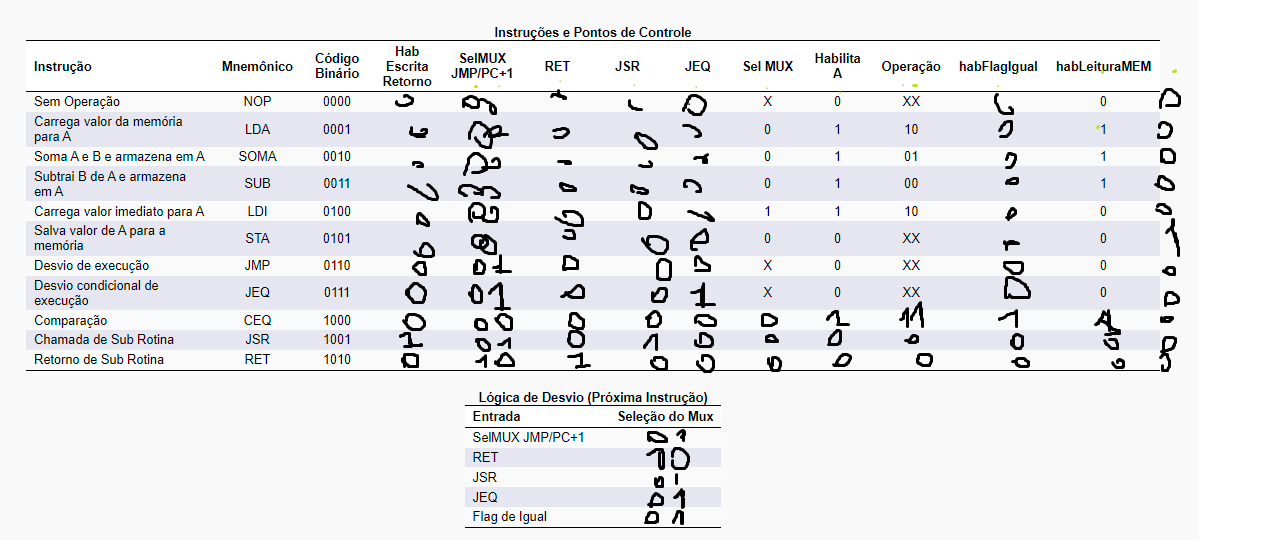 Instruções e Pontos de Controle
Instrução Mnemônico Código Binário Hab Escrita Retorno SelMUX JMP/PC+1 RET JSR JEQ Sel MUX Habilita A Operação habFlagIgual habLeituraMEM
Sem Operação NOP 0000 0 00 0 X 0 XX 0 0
Carrega valor da memória para A LDA 0001 0 00 0 0 0 0 1 10 0 1 0
Soma A e B e armazena em A SOMA 0010 0 00 0 0 1 01 0 1 0
Subtrai B de A e armazena em A SUB 0011 00 0 0 0 0 1 00 0 1 0
Carrega valor imediato para A LDI 0100 0 00 0 0 1 1 10 0 0 0
Salva valor de A para a memória STA 0101 0 00 0 0 0 0 0 XX 0 1
Desvio de execução JMP 0110 0 01 0 0 0 X 0 XX 0 0 0
Desvio condicional de execução JEQ 0111 0 01 0 0 1 X 0 XX 0 0 0
Comparação CEQ 1000 0 00 0 0 0 0 1 11 1 1 0
Chamada de Sub Rotina JSR 1001 1 01 0 1 0 0 0 0 0 0 0
Retorno de Sub Rotina RET 1010 0 10 1 0 0 0 0 0 0 0 0
Lógica de Desvio (Próxima Instrução)
Entrada Seleção do Mux
SelMUX JMP/PC+1 01
RET 10
JSR 01
JEQ 01
Flag de Igual 01